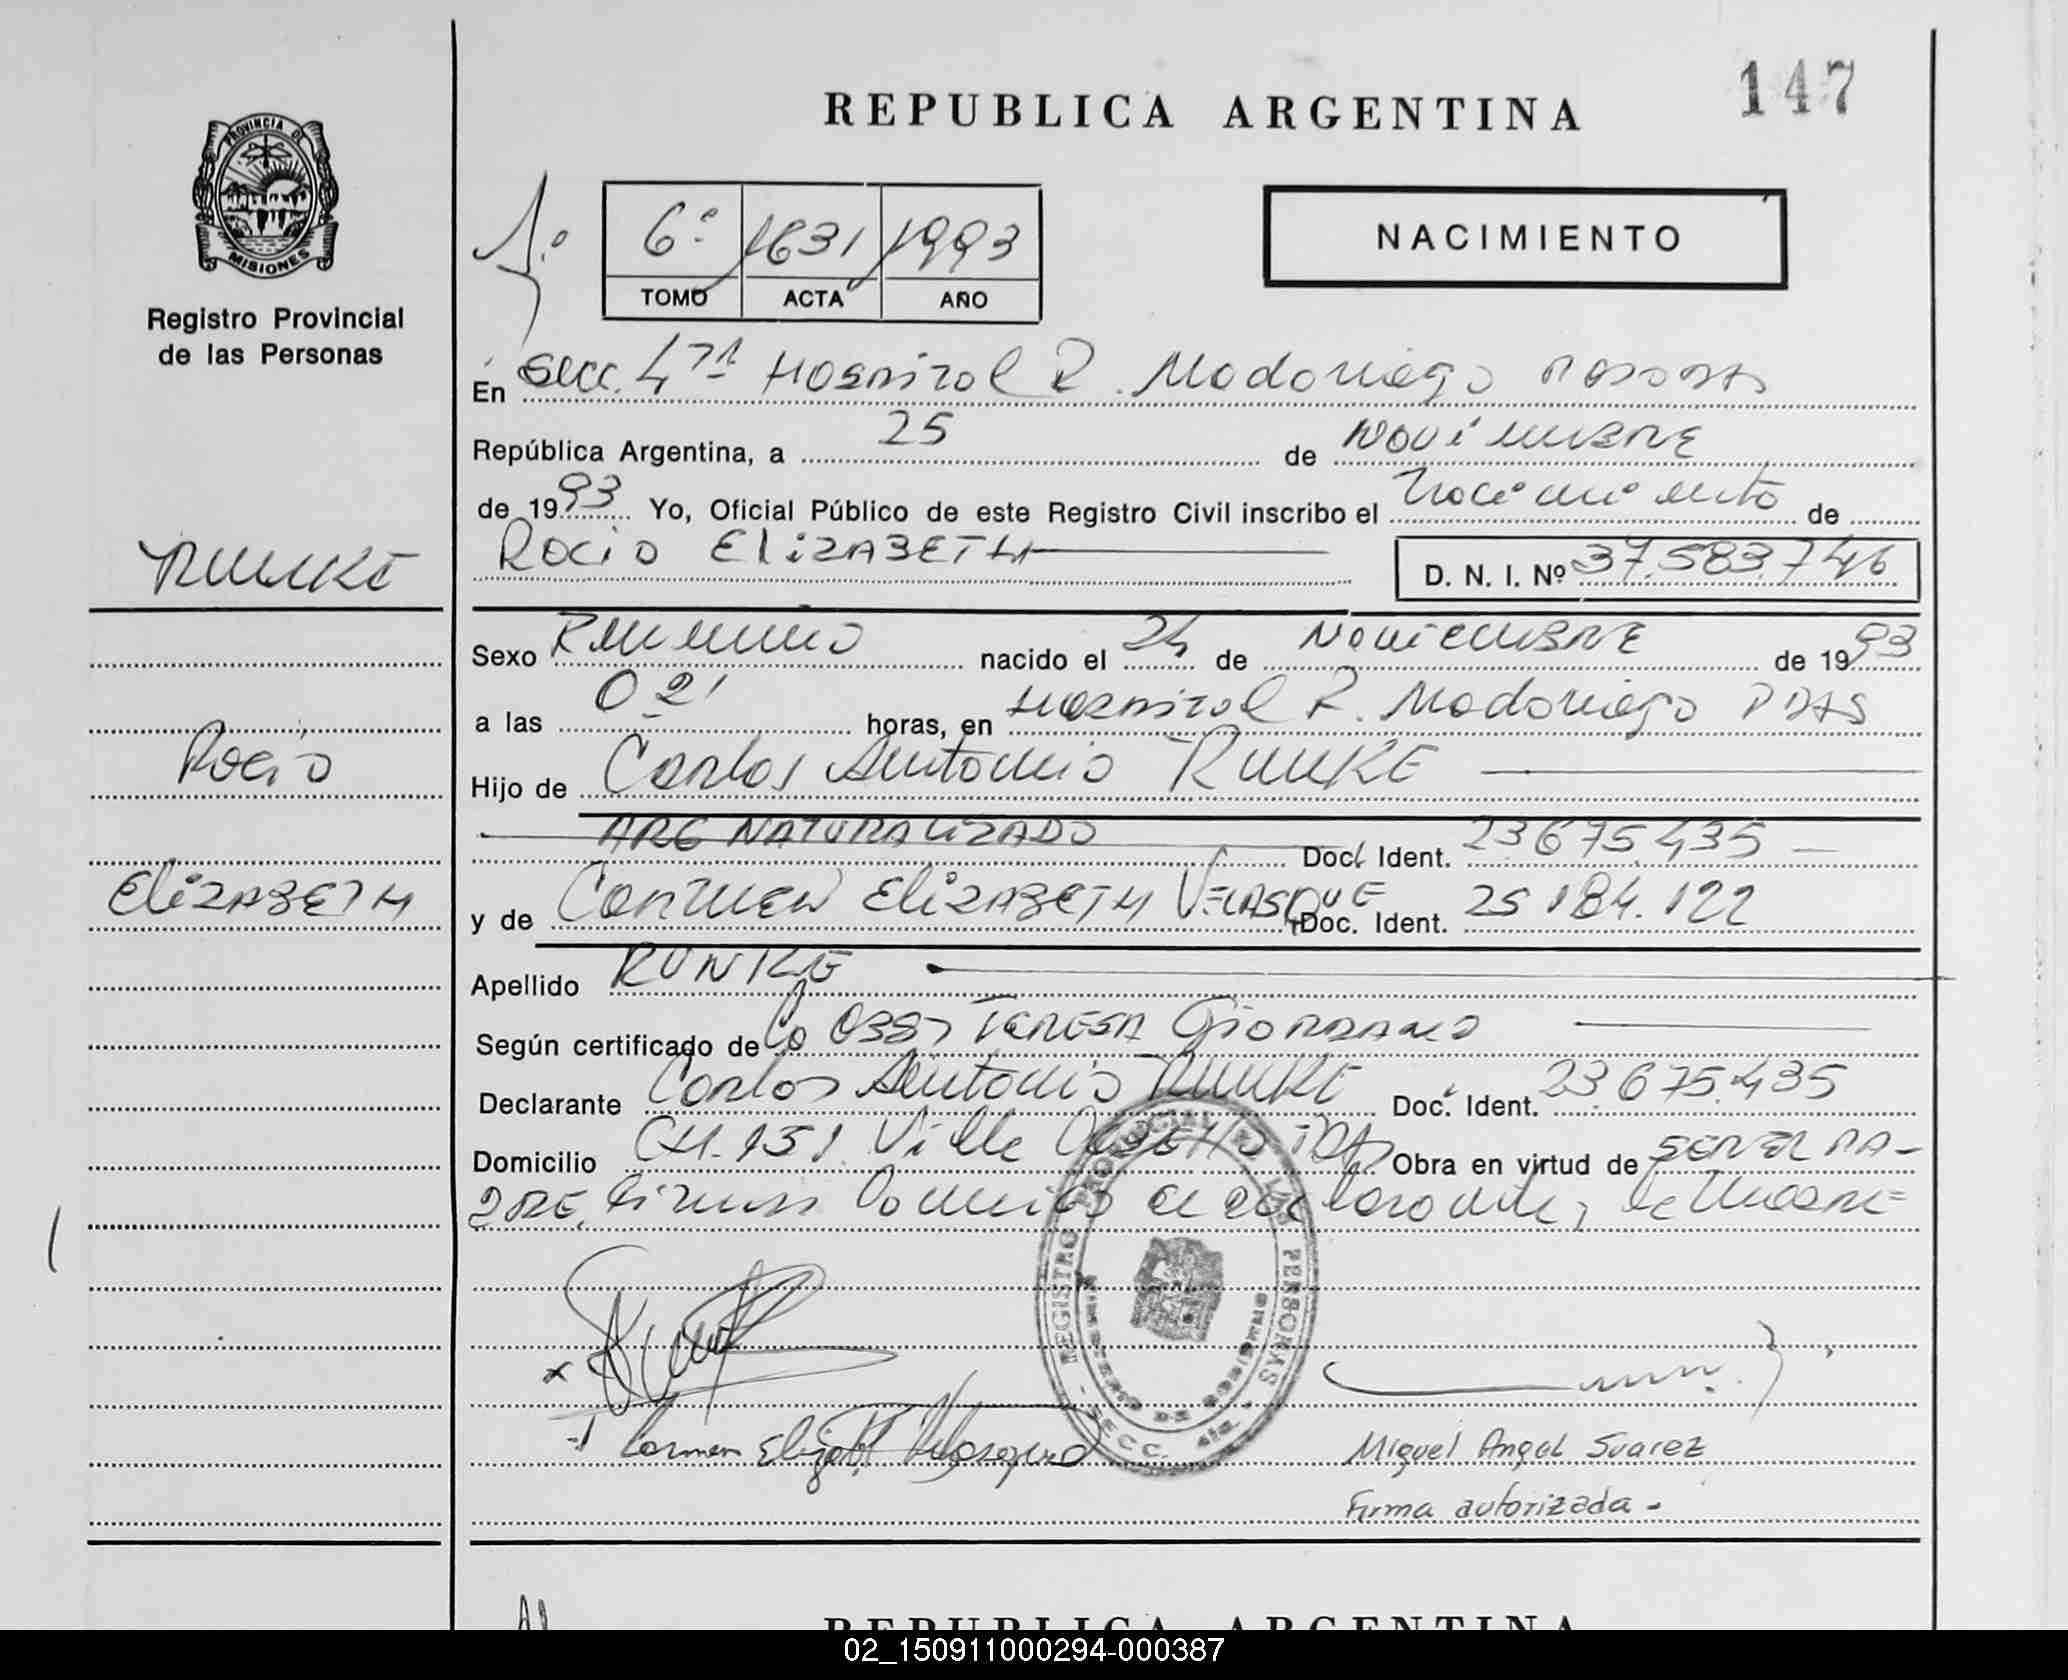 147
REPUBLICA ARGENTINA
PROVINCIA DE
MISIONES
Registro Provincial
de las Personas
6º 1631 1993
TOMO ACTA AÑO
NACIMIENTO
En Secc. 4ta Hospital R. Madariaga Posadas
República Argentina, a 25 de Noviembre
de 1993 Yo, Oficial Público de este Registro Civil inscribo el Nacimiento de
ROCIO ELIZABETH
D. N. I. Nº 37.583.746
RUNKE
Sexo Femenino nacido el 24 de Noviembre de 1993
a las 02 horas, en Hospital R. Madariaga Pdas
Rocio
Hijo de Carlos Antonio RUNKE
ARG NATURALIZADO Doc. Ident. 23675.435
ELIZABETH
y de Carmen Elizabeth VELASQUE Doc. Ident. 25.184.122
Apellido RUNKE
Según certificado de la Obst Teresa Giordano
Declarante Carlos Antonio RUNKE Doc. Ident. 23.675.435
Domicilio CH. 151. Villa Obra en virtud de ser el PA-
DRE, firman el declarante, la madre
REGISTRO PROVINCIAL DE LAS PERSONAS
MINISTERIO DE GOBIERNO
SECC. 4ta.
Carmen Elizabeth
Miguel Angel Suarez
Firma autorizada -
REPUBLICA ARGENTINA
02_150911000294-000387